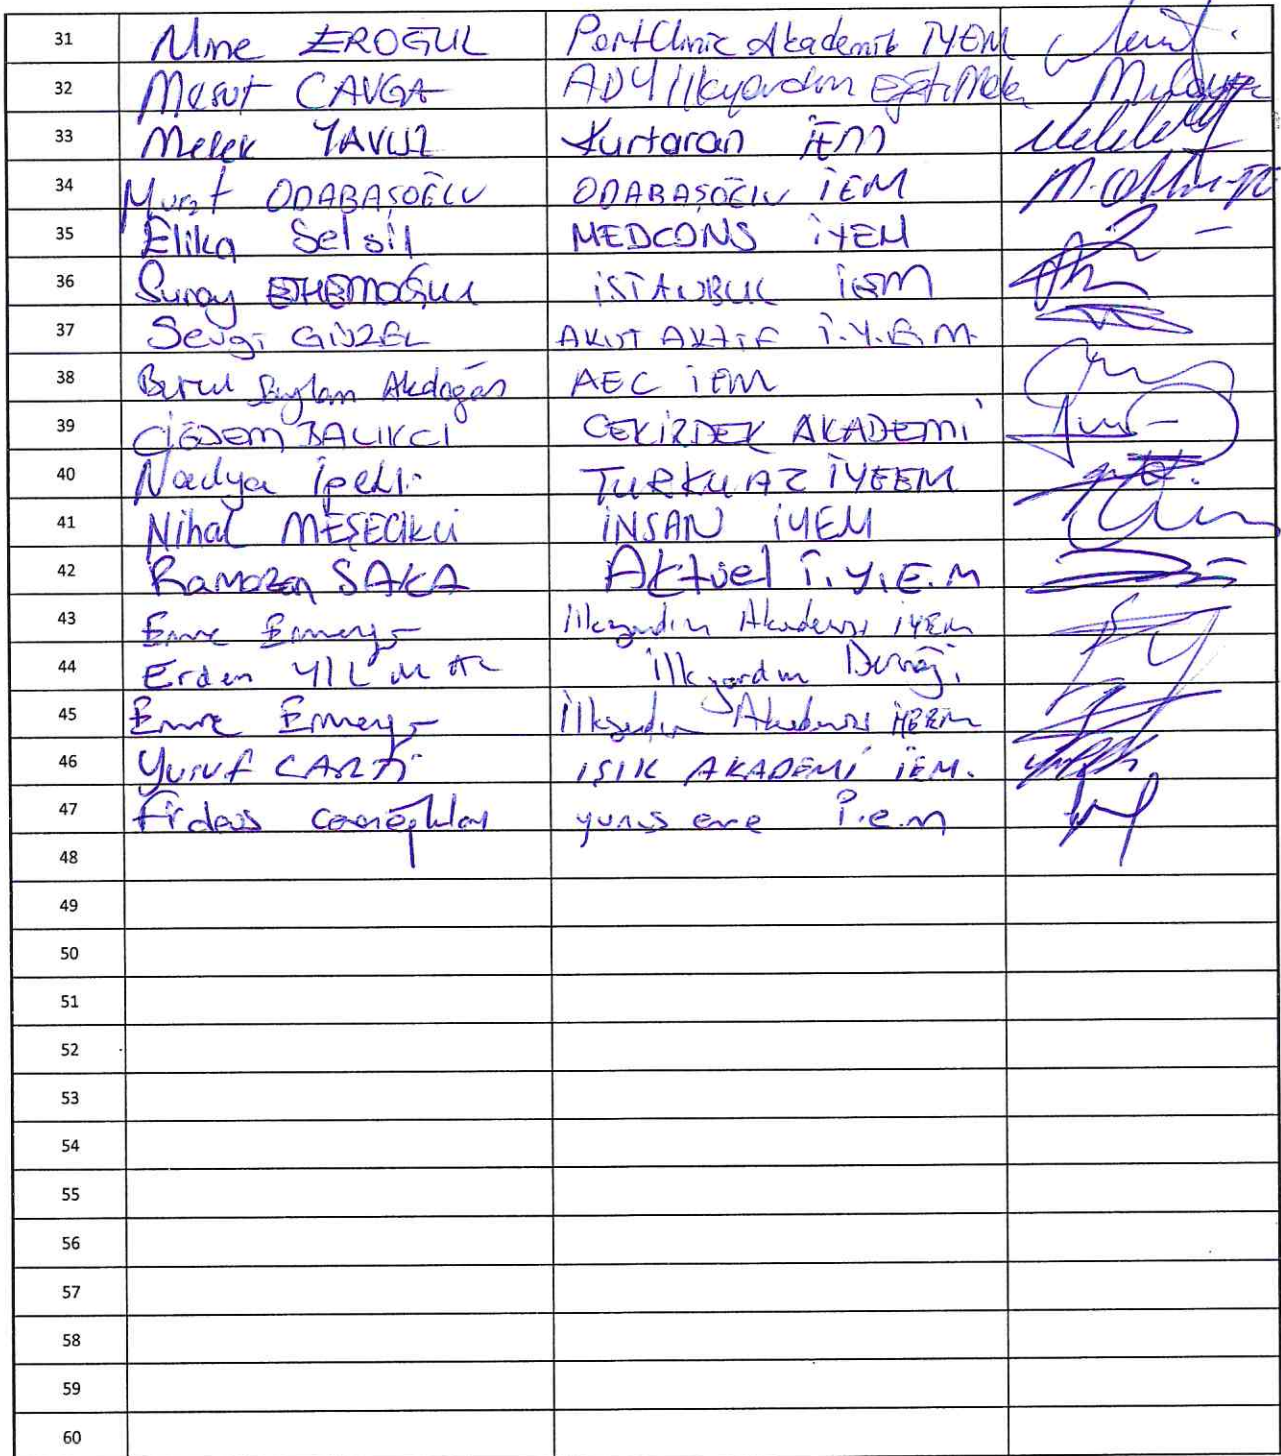 31 Mine EROĞUL PortClinic Akademik İYEM
32 Mesut CAVGA ADY İlkyardım Eğt. Merk
33 Melek YAVUZ Kurtaran İEM
34 Murat ODABAŞOĞLU ODABAŞOĞLU İEM
35 Elika Selsil MEDCONS İYEM
36 Suray ETHEMOĞLU İSTANBUL İEM
37 Sevgi GÜZEL AKUT AKTİF İ.Y.E.M.
38 Bircul Akdoğan AEC İEM
39 ÇİĞDEM BALIKCI CEKİRDEK AKADEMİ
40 Nadya İpekli TURKUAZ İYEEM
41 Nihal MEŞECİKLİ İNSAN İYEM
42 Ramazan SAKA Aktüel İ.Y.E.M
43 Emre İlkyardım Akademisi İYEM
44 Erdem YILMAZ İlkyardım Derneği
45 Emre İlkyardım Akademisi
46 Yusuf CANLI IŞIK AKADEMİ İEM.
47 Firdevs yunus emre İ.e.m
48
49
50
51
52
53
54
55
56
57
58
59
60